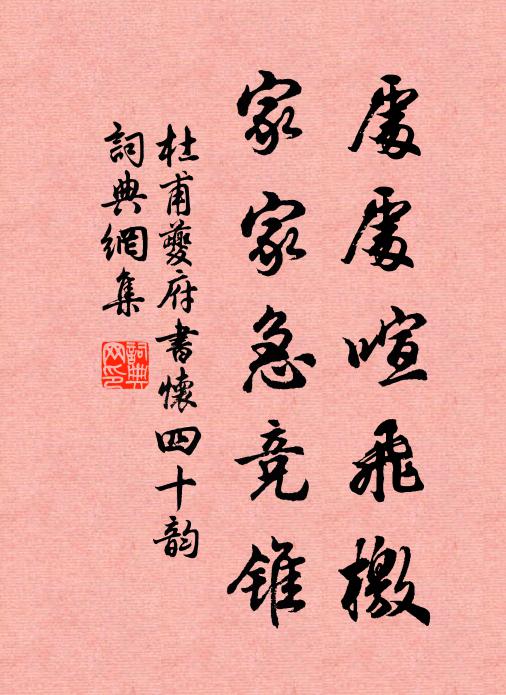 處處喧飛檄
家家急竞錐
杜甫夔府書懷四十韵
詞典網集
詞典網印